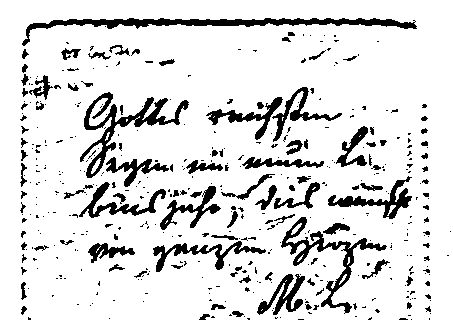 Gottes reichsten
Segen im neuen Le-
bensjahr, das wünscht
von ganzem Herzen
M. L.